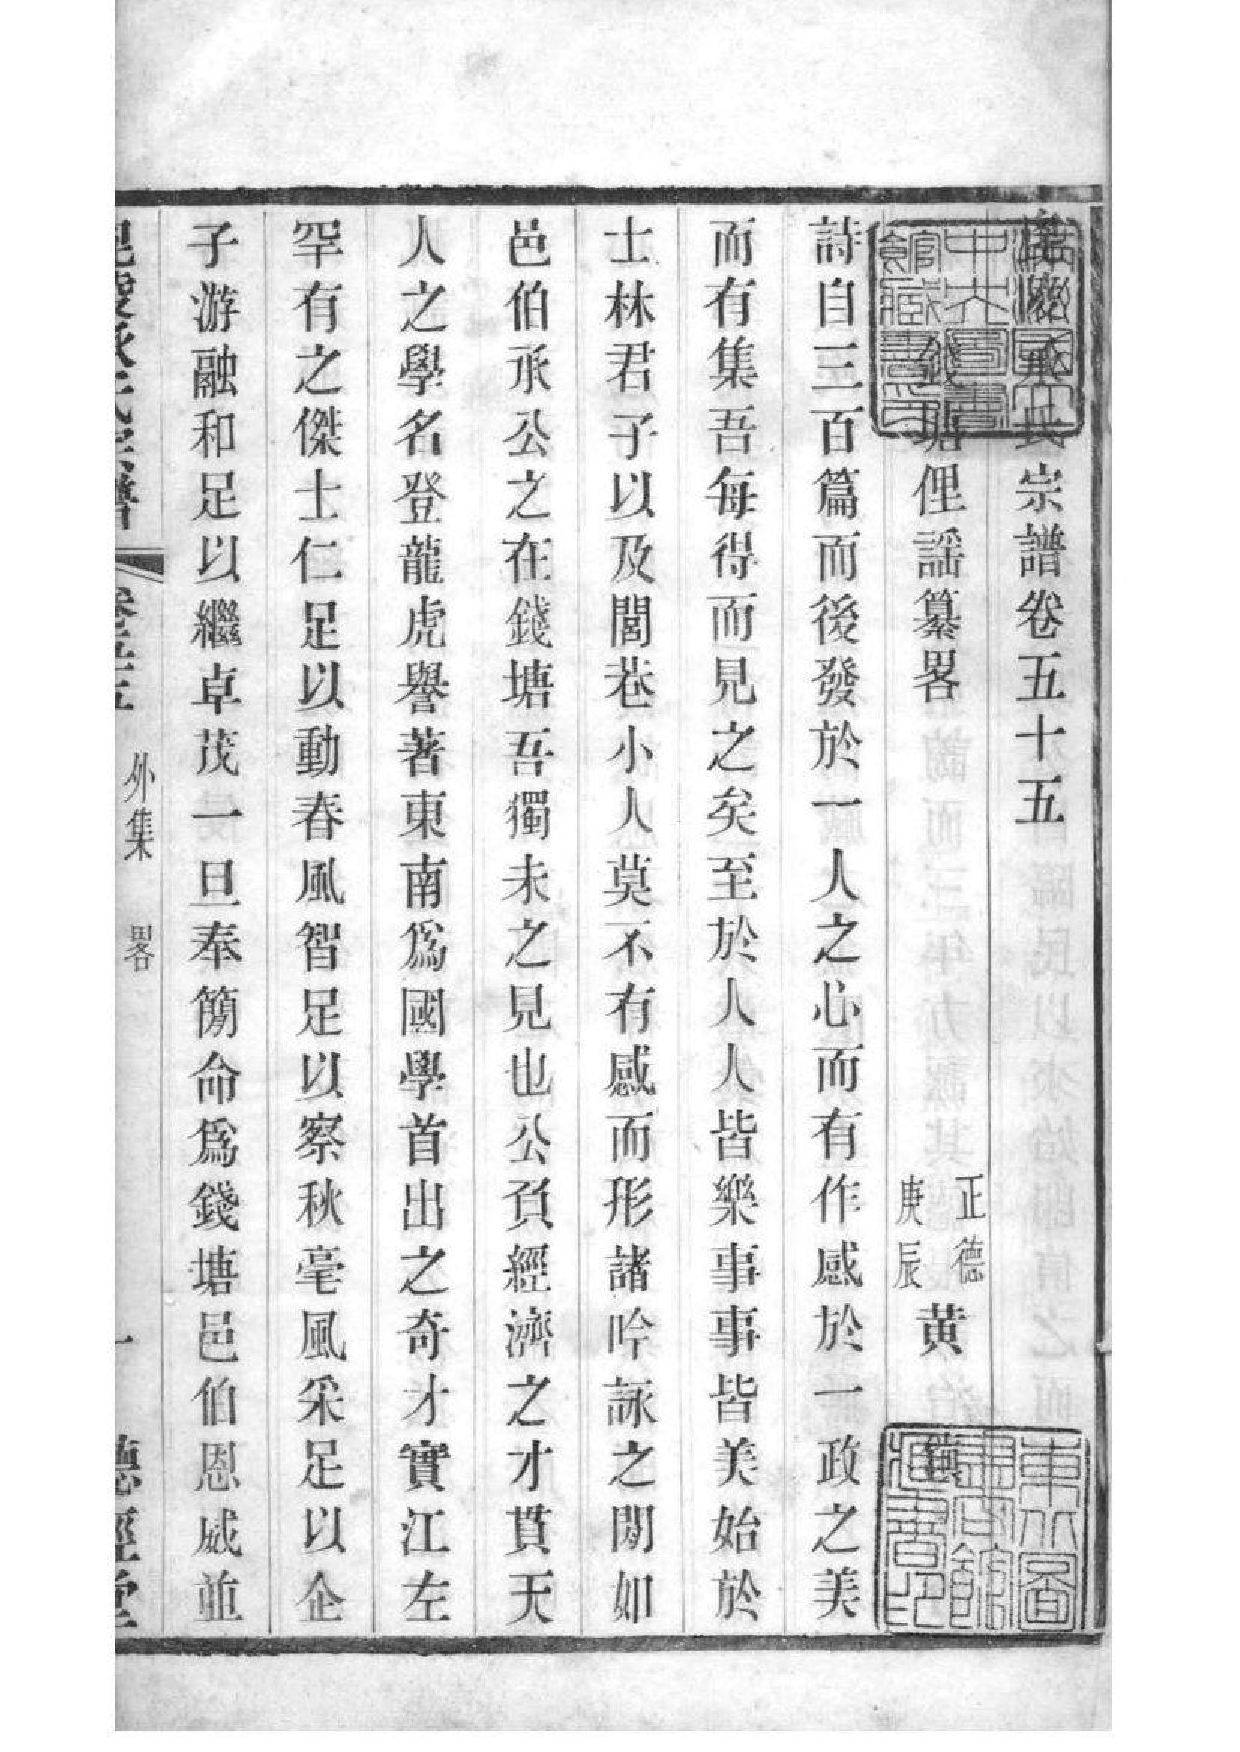 毘陵承氏宗譜卷五十五
錢塘俚謡纂畧
正德
庚辰
黄
詩自三百篇而後發於一人之心而有作感於一政之美
而有集吾每得而見之矣至於人人皆樂事事皆美始於
士林君子以及閭巷小人莫不有感而形諸吟詠之閒如
邑伯承公之在錢塘吾獨未之見也公負經濟之才貫天
人之學名登龍虎譽著東南爲國學首出之奇才實江左
罕有之傑士仁足以動春風智足以察秋毫風采足以企
子游融和足以繼卓茂一旦奉簡命爲錢塘邑伯恩威並
毘陵承氏宗譜
卷五十五
外集
畧
一
德經堂